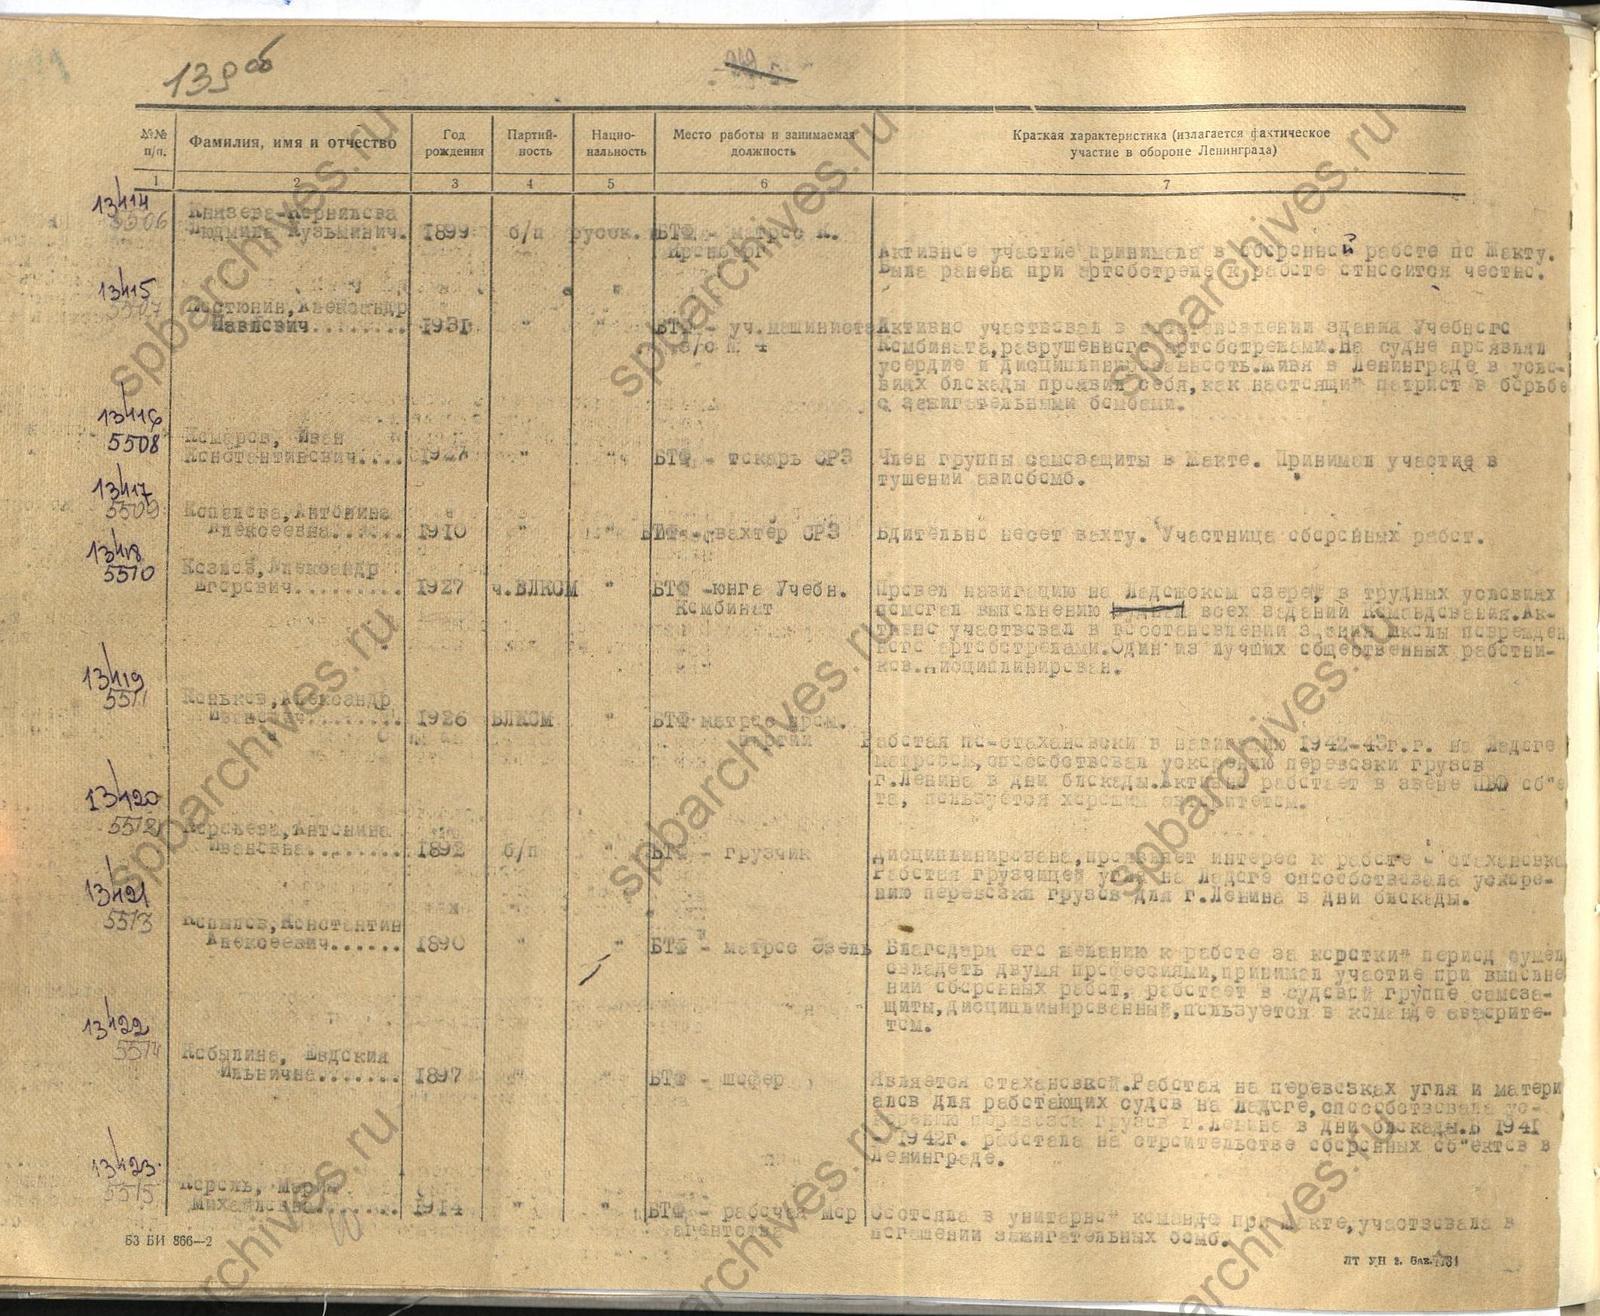 139 об
№№ п/п.
Фамилия, имя и отчество
Год рождения
Партий-
ность
Нацио-
нальность
Место работы и занимаемая
должность
Краткая характеристика (излагается фактическое
участие в обороне Ленинграда)
1 2 3 4 5 6 7
13414
5506
Князева-Корнилова
Людмила Кузьминич. 1899 б/п русск. БТФ - матрос п.
Активное участие принимала в оборонной работе по Жакту.
Была ранена при артобстреле к работе относится честно.
13415
5507
Костюнин, Александр
Павлович........ 1931 " " БТФ - уч. машиниста
Активно участвовал в восстановлении здания Учебного
Комбината, разрушенного артобстрелами. На судне проявлял
усердие и дисциплинированность. Живя в Ленинграде в усло-
виях блокады проявил себя, как настоящий патриот в борьбе
с зажигательными бомбами.
13416
5508
Комаров, Иван
Константинович.... 1927 " " БТФ - токарь СРЗ
Член группы самозащиты в Жакте. Принимал участие в
тушении авиобомб.
13417
5509
Копалова, Антонина
Алексеевна...... 1910 " " БТФ - вахтер СРЗ
Бдительно несет вахту. Участница оборонных работ.
13418
5510
Козлов, Александр
Егорович......... 1927 ч.ВЛКСМ " БТФ -юнга Учебн.
Комбинат
Провел навигацию на Ладожском озере, в трудных условиях
помогал выполнению всех заданий Командования. Ак-
тивно участвовал в восстановлении здания школы поврежден
ного артобстрелами. Один из лучших общественных работни-
ков. Дисциплинирован.
13419
5511
Коньков, Александр
Иванович........ 1926 ВЛКСМ " БТФ матрос
Работая по-стахановски в навигацию 1942-43г.г. на Ладоге
матросом, способствовал ускорению перевозки грузов
г.Ленина в дни блокады. Активно работает в звене ПВО об"е
та, пользуется хорошим авторитетом.
13420
5512
Королева, Антонина
Ивановна........ 1892 б/п " БТФ - грузчик
Дисциплинирована, проявляет интерес к работе - стахановка
Работая грузчицей угля на Ладоге способствовала ускоре-
нию перевозки грузов для г.Ленина в дни блокады.
13421
5513
Копылов, Константин
Алексеевич...... 1890 " " БТФ - матрос Эзель
Благодаря его желанию к работе за короткий период сумел
овладеть двумя профессиями, принимал участие при выполне
нии оборонных работ, работает в судовой группе самоза-
щиты, дисциплинированный, пользуется в команде авторите-
том.
13422
5514
Кобылина, Евдокия
Ильинична....... 1897 " " БТФ - шофер
Является стахановкой. Работая на перевозках угля и матери
алов для работающих судов на Ладоге, способствовала ус-
корению перевозок грузов г.Ленина в дни блокады. В 1941
1942г. работала на строительстве оборонных об"ектов в
Ленинграде.
13423
5515
Король, Мария
Михайловна....... 1914 " " БТФ - рабочая Мор
агентства
Состояла в унитарной команде при Жакте, участвовала в
погашении зажигательных бомб.
БЗ БИ 866—2
ЛТ УН з.
spbarchives.ru
spbarchives.ru
spbarchives.ru
spbarchives.ru
spbarchives.ru
spbarchives.ru
spbarchives.ru
spbarchives.ru
spbarchives.ru